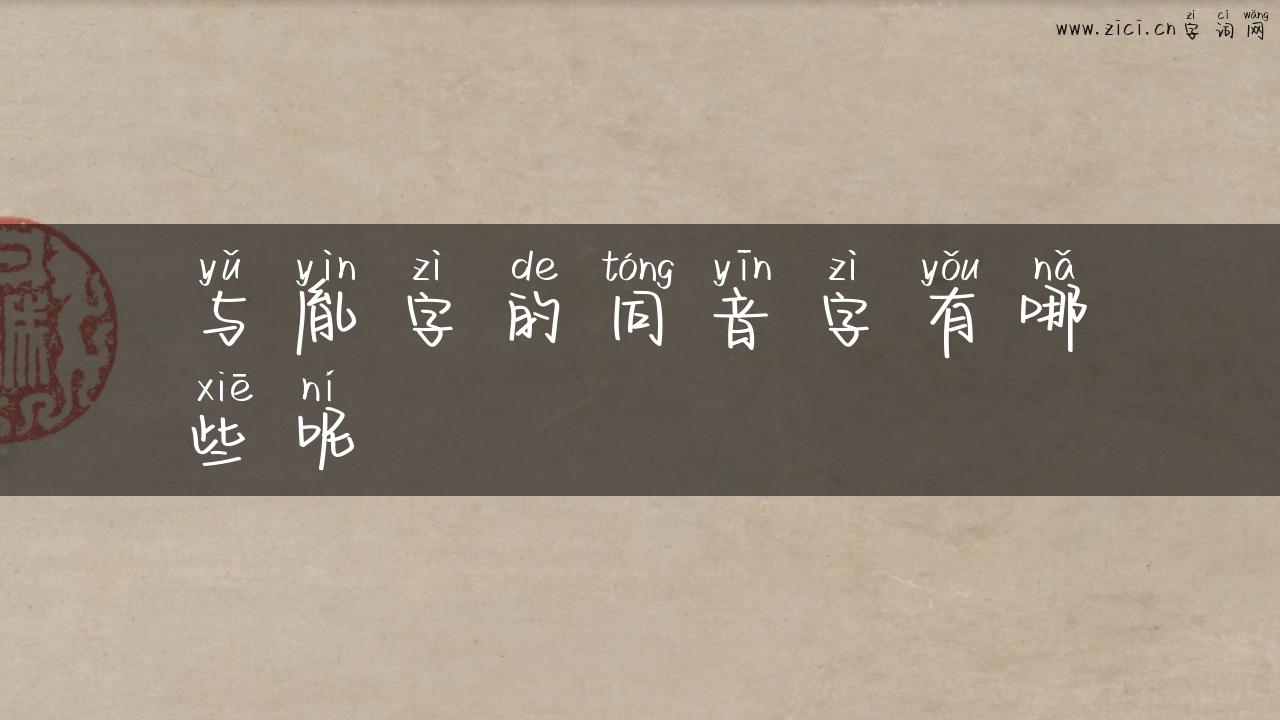 zì cí wǎng
www.zici.cn字词网
yǔ yìn zì de tóng yīn zì yǒu nǎ
与胤字的同音字有哪
xiē ní
些呢